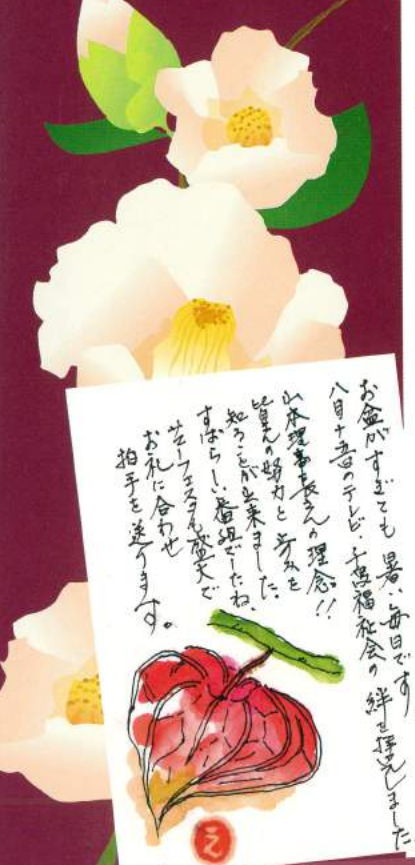 お盆がすぎても暑い毎日です
八月十五日のテレビ、子供福祉会の絆を拝見しました
山本理事長さんの理念!!
皆さんの努力と歩みを
知ることが出来ました。
すばらしい番組でしたね、
サマーフェスタも盛大で
お礼に合わせ
拍手を送ります。
え